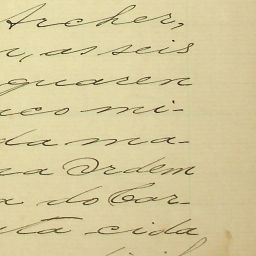 Archer,
, as seis
quaren
co mi-
da ma-
na Ordem
a do Car-
ta cida